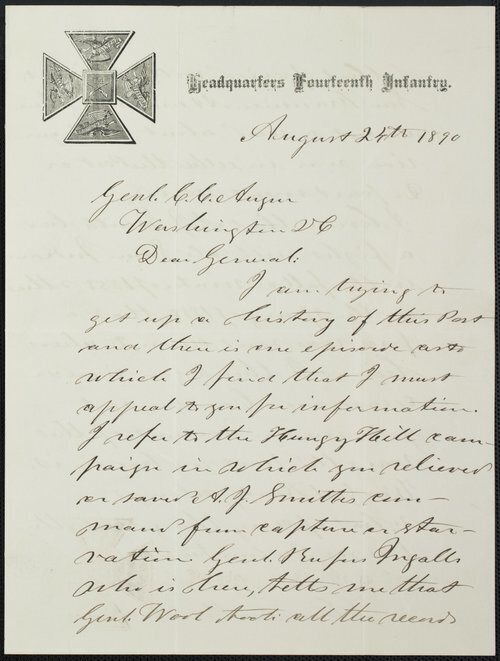 Headquarters Fourteenth Infantry.
August 24th 1890
Genl. C. C. Augur
Washington DC
Dear General:
I am trying to
get up a history of this Post
and there is one episode as to
which I find that I must
appeal to you for information.
I refer to the Hungry Hill cam-
paign in which you relieved
or saved A. J. Smith's com-
mand from capture or star-
vation. Genl. Rufus Ingalls
who is here, tells me that
Genl. Wool took all the records